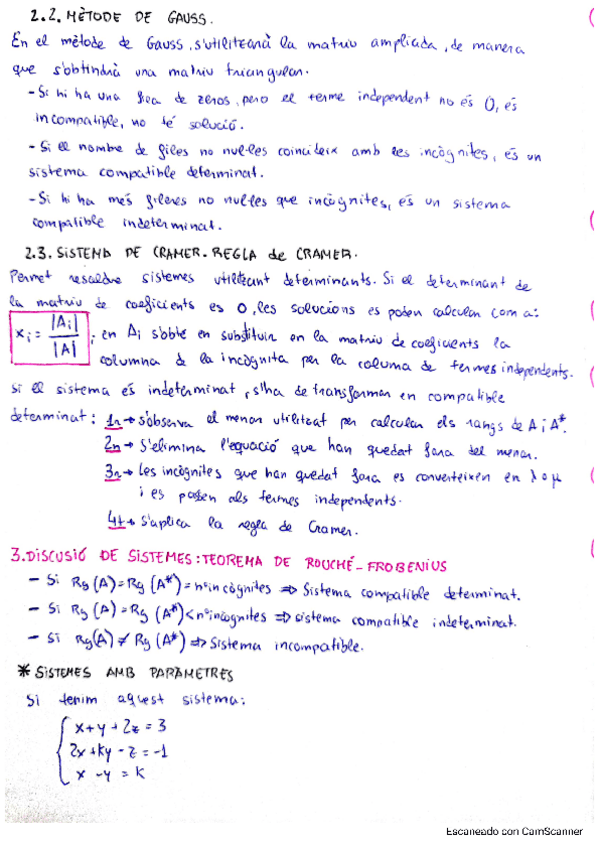 2.2. MÈTODE DE GAUSS.
En el mètode de Gauss, s'utilitzarà la matriu ampliada, de manera
que s'obtindrà una matriu triangular.
- Si hi ha una fila de zeros, pero el terme independent no és 0, és
incompatible, no té solució.
- Si el nombre de files no nul·les coincideix amb les incògnites, és un
sistema compatible determinat.
- Si hi ha més fileres no nul·les que incògnites, és un sistema
compatible indeterminat.
2.3. SISTEMA DE CRAMER. REGLA de CRAMER.
Permet resoldre sistemes utilitzant determinants. Si el determinant de
la matriu de coeficients es 0, les solucions es poden calcular com a:
xi = |Ai| / |A| ; en Ai s'obté en substituir en la matriu de coeficients la
columna de la incògnita per la columa de termes independents.
Si el sistema és indeterminat, s'ha de transformar en compatible
determinat: 1r → s'observa el menor utilitzat per calcular els rangs de A i A*.
2n → S'elimina l'equació que han quedat fora del menor.
3r → Les incògnites que han quedat fora es converteixen en λ o μ
i es posen als termes independents.
4t → S'aplica la regla de Cramer.
3. DISCUSIÓ DE SISTEMES: TEOREMA DE ROUCHÉ-FROBENIUS
- Si Rg (A) = Rg (A*) = nº incògnites ⇒ Sistema compatible determinat.
- Si Rg (A) = Rg (A*) < nº incògnites ⇒ sistema compatible indeterminat.
- Si Rg(A) ≠ Rg (A*) ⇒ Sistema incompatible.
* SISTEMES AMB PARÀMETRES
Si tenim aquest sistema:
x + y + 2z = 3
2x + ky - z = -1
x - y = k
Escaneado con CamScanner